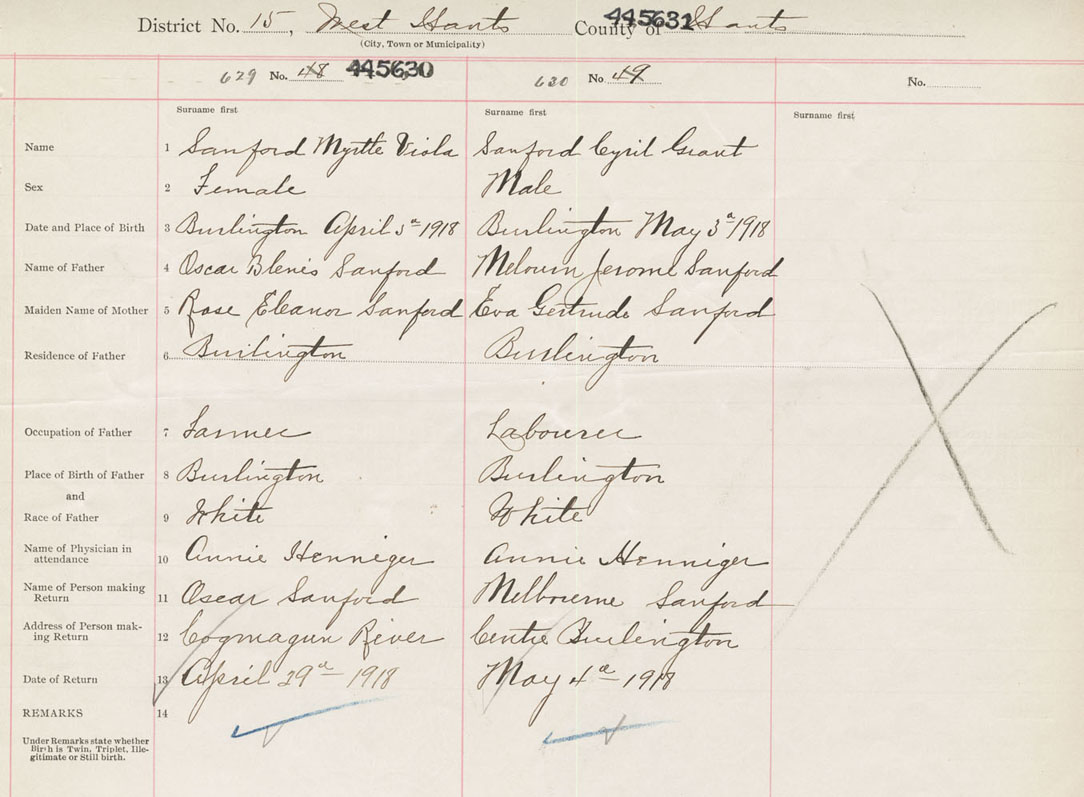 District No. 15, West Hants County of Hants 445631
(City, Town or Municipality)
629 No. 48 445630 630 No. 49 No.
Surname first Surname first Surname first
Name 1 Sanford Myrtle Viola Sanford Cyril Grant
Sex 2 Female Male
Date and Place of Birth 3 Burlington April 3d 1918 Burlington May 3d 1918
Name of Father 4 Oscar Blenis Sanford Melourn Jerome Sanford
Maiden Name of Mother 5 Rose Eleanor Sanford Eva Gertrude Sanford
Residence of Father 6 Burlington Burlington
Occupation of Father 7 Farmer Labourer
Place of Birth of Father 8 Burlington Burlington
and
Race of Father 9 White White
Name of Physician in attendance 10 Annie Henniger Annie Henniger
Name of Person making Return 11 Oscar Sanford Melbourne Sanford
Address of Person mak-ing Return 12 Cogmagun River Centre Burlington
Date of Return 13 April 29th 1918 May 4th 1918
REMARKS 14
Under Remarks state whether
Birth is Twin, Triplet, Ille-
gitimate or Still birth.